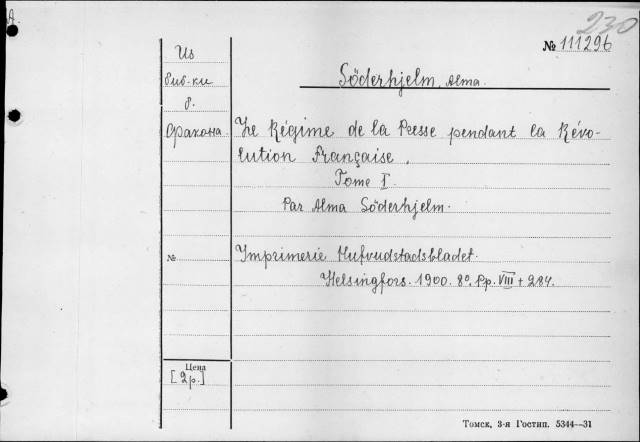 A.
230
№ 111296
Из
биб-ки
г.
Фракона.
Söderhjelm, Alma.
Le Régime de la Presse pendant la Révo-
lution Française.
Tome I.
Par Alma Söderhjelm.
№
Imprimerie Hufvudstadsbladet.
Helsingfors. 1900. 8°. Pp. VIII + 284.
Цена
[2р.]
Томск, 3-я Гостип. 5344—31